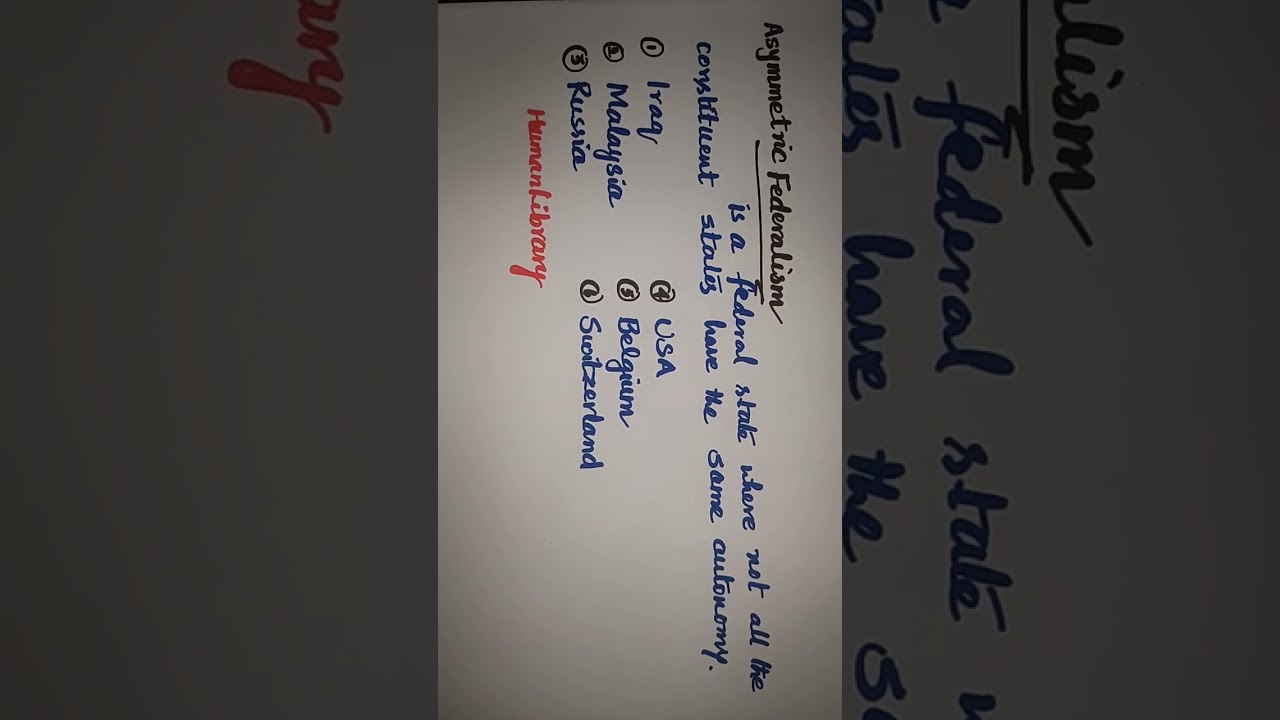 Asymmetric Federalism
is a federal state where not all the
constituent states have the same autonomy.
① Iraq ④ USA
② Malaysia ⑤ Belgium
③ Russia ⑥ Switzerland
HumanLibrary